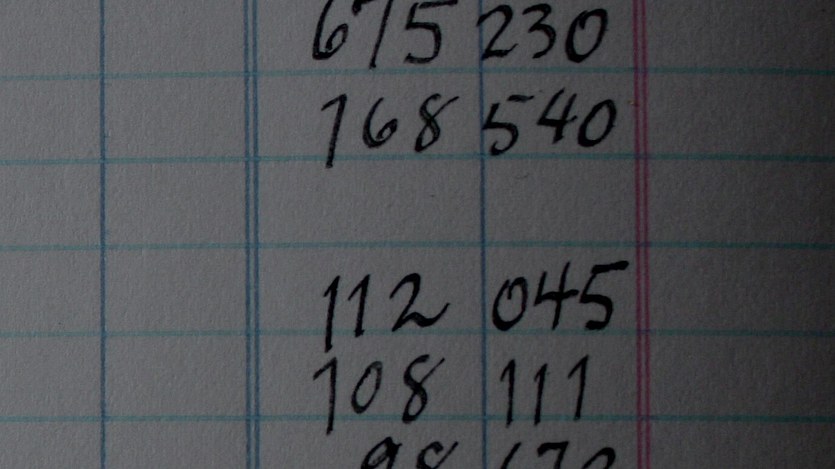 675 230
168 540
112 045
108 111